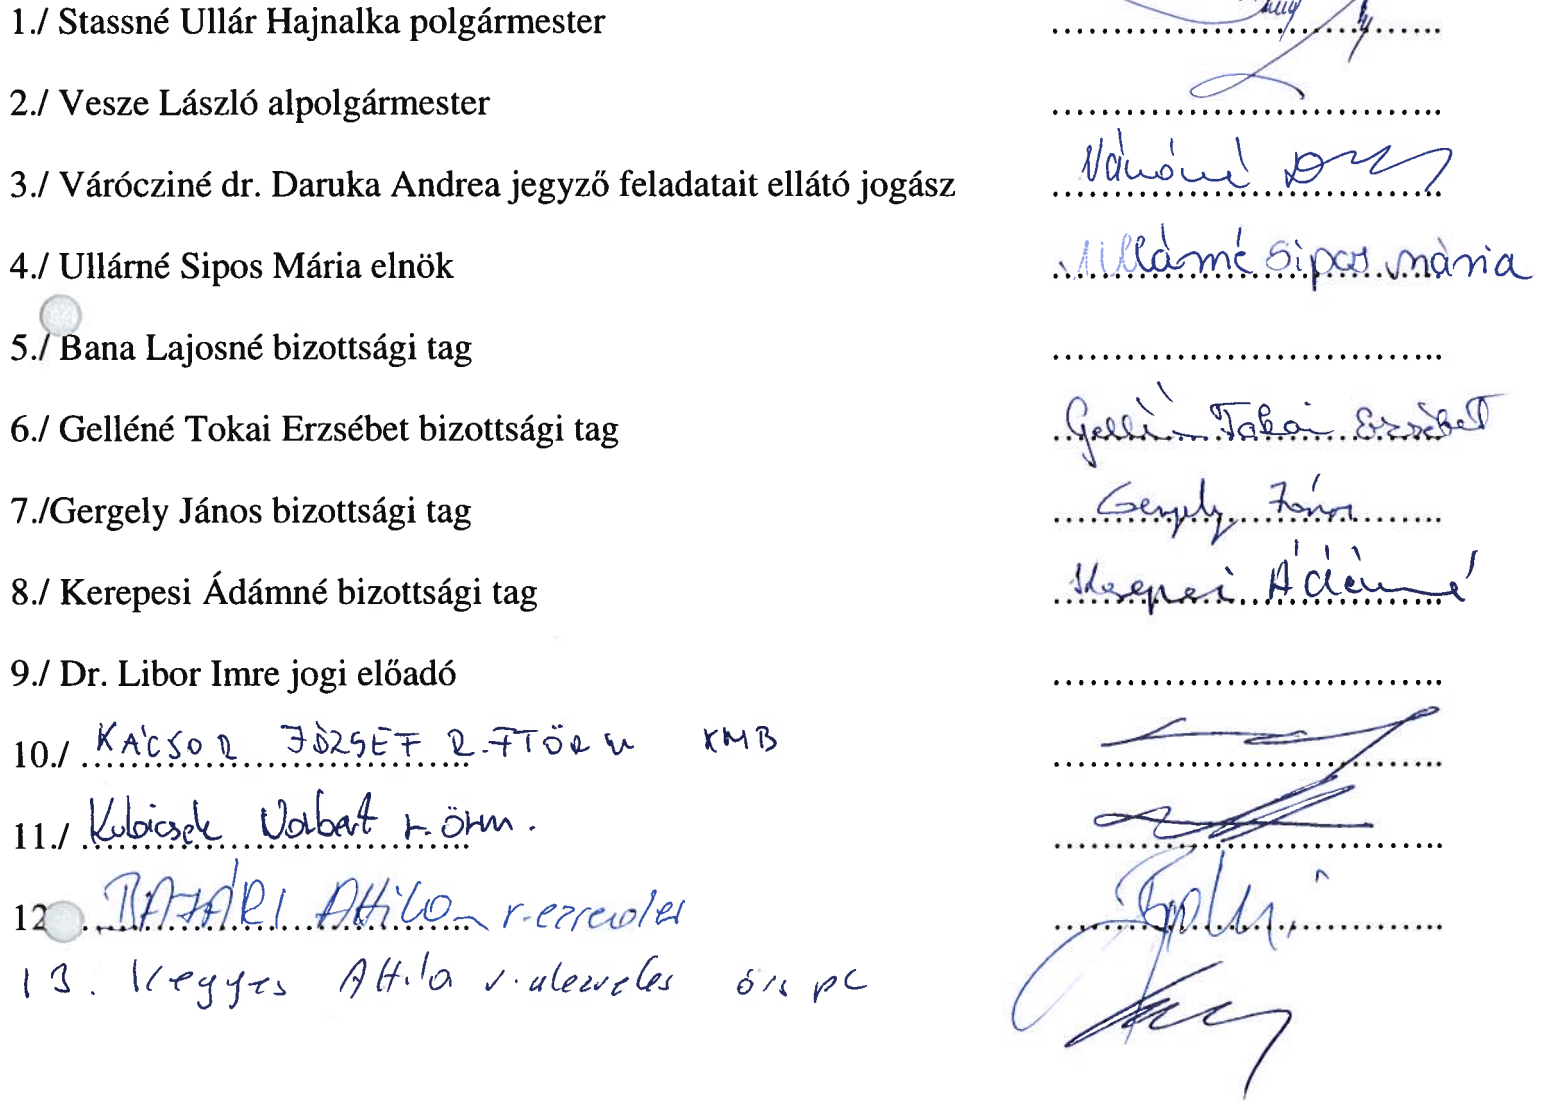 1./ Stassné Ullár Hajnalka polgármester ..............................
2./ Vesze László alpolgármester ..............................
3./ Várócziné dr. Daruka Andrea jegyző feladatait ellátó jogász ..............................
4./ Ullárné Sipos Mária elnök Ullárné Sipos Mária
5./ Bana Lajosné bizottsági tag ..............................
6./ Gelléné Tokai Erzsébet bizottsági tag Gelléné Tokai Erzsébet
7./Gergely János bizottsági tag Gergely János
8./ Kerepesi Ádámné bizottsági tag Kerepesi Ádámné
9./ Dr. Libor Imre jogi előadó ..............................
10./ KÁCSOR JÓZSEF R.FTÖRM KMB ..............................
11./ Kubicsek Norbert r. őrm. ..............................
12 Attila r. ezredes ..............................
13. Kegyes Attila r. alezredes őrs pc